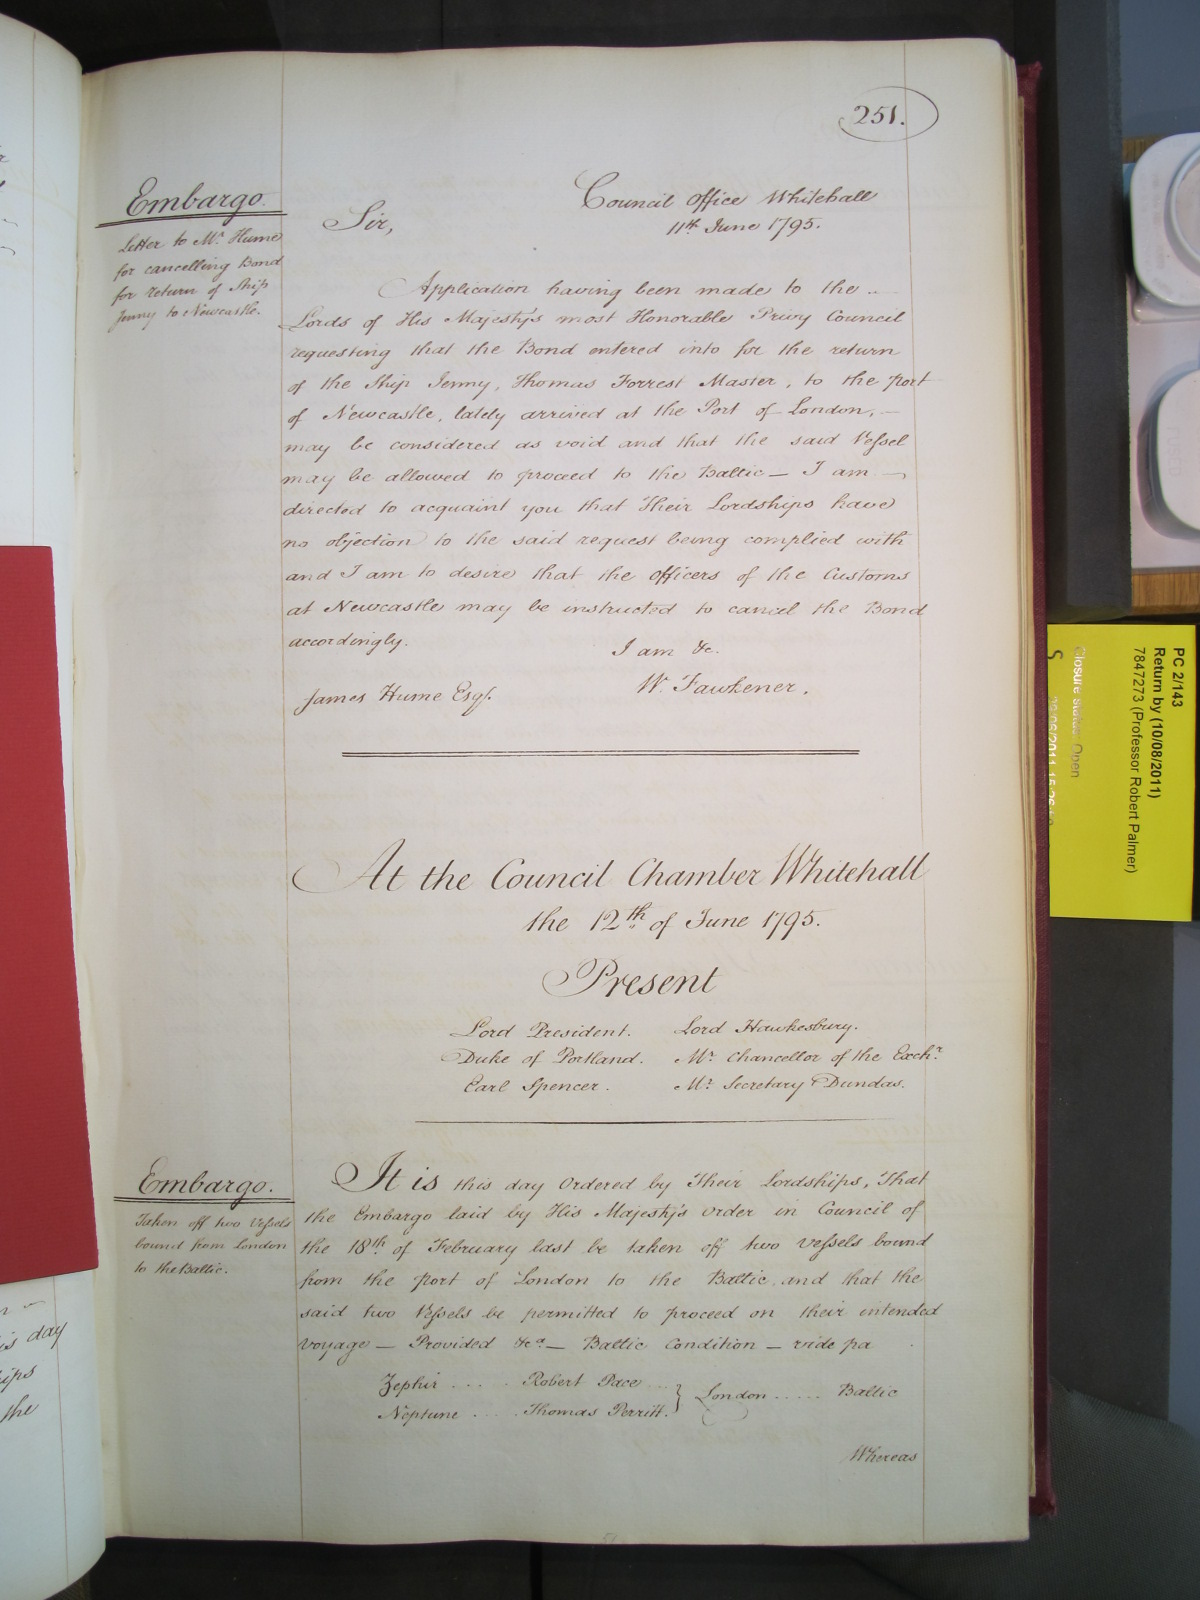 251.
Embargo.
Letter to Mr. Hume
for cancelling Bond
for return of Ship
Jenny to Newcastle.
Council Office Whitehall
11th June 1795.
Sir,
Application having been made to the
Lords of His Majesty's most Honorable Privy Council
requesting that the Bond entered into for the return
of the Ship Jenny, Thomas Forrest Master, to the port
of Newcastle, lately arrived at the Port of London, —
may be considered as void and that the said Vessel
may be allowed to proceed to the Baltic — I am —
directed to acquaint you that Their Lordships have
no objection to the said request being complied with
and I am to desire that the Officers of the Customs
at Newcastle may be instructed to cancel the Bond
accordingly.
I am &c.
W. Fawkener.
James Hume Esqr.
At the Council Chamber Whitehall
the 12th of June 1795.
Present
Lord President. Lord Hawkesbury.
Duke of Portland. Mr. Chancellor of the Exchr.
Earl Spencer. Mr. Secretary Dundas.
Embargo.
Taken off two Vessels
bound from London
to the Baltic.
It is this day Ordered by Their Lordships, That
the Embargo laid by His Majesty's Order in Council of
the 18th of February last be taken off two Vessels bound
from the port of London to the Baltic, and that the
said two Vessels be permitted to proceed on their intended
Voyage — Provided &ca — Baltic Condition — vide pa
Zephir .... Robert Pace ...
Neptune .... Thomas Perritt. } London ..... Baltic
Whereas
is day
ips
the
PC 2/143
Return by (10/08/2011)
7847273 (Professor Robert Palmer)
Closure status: Open
S